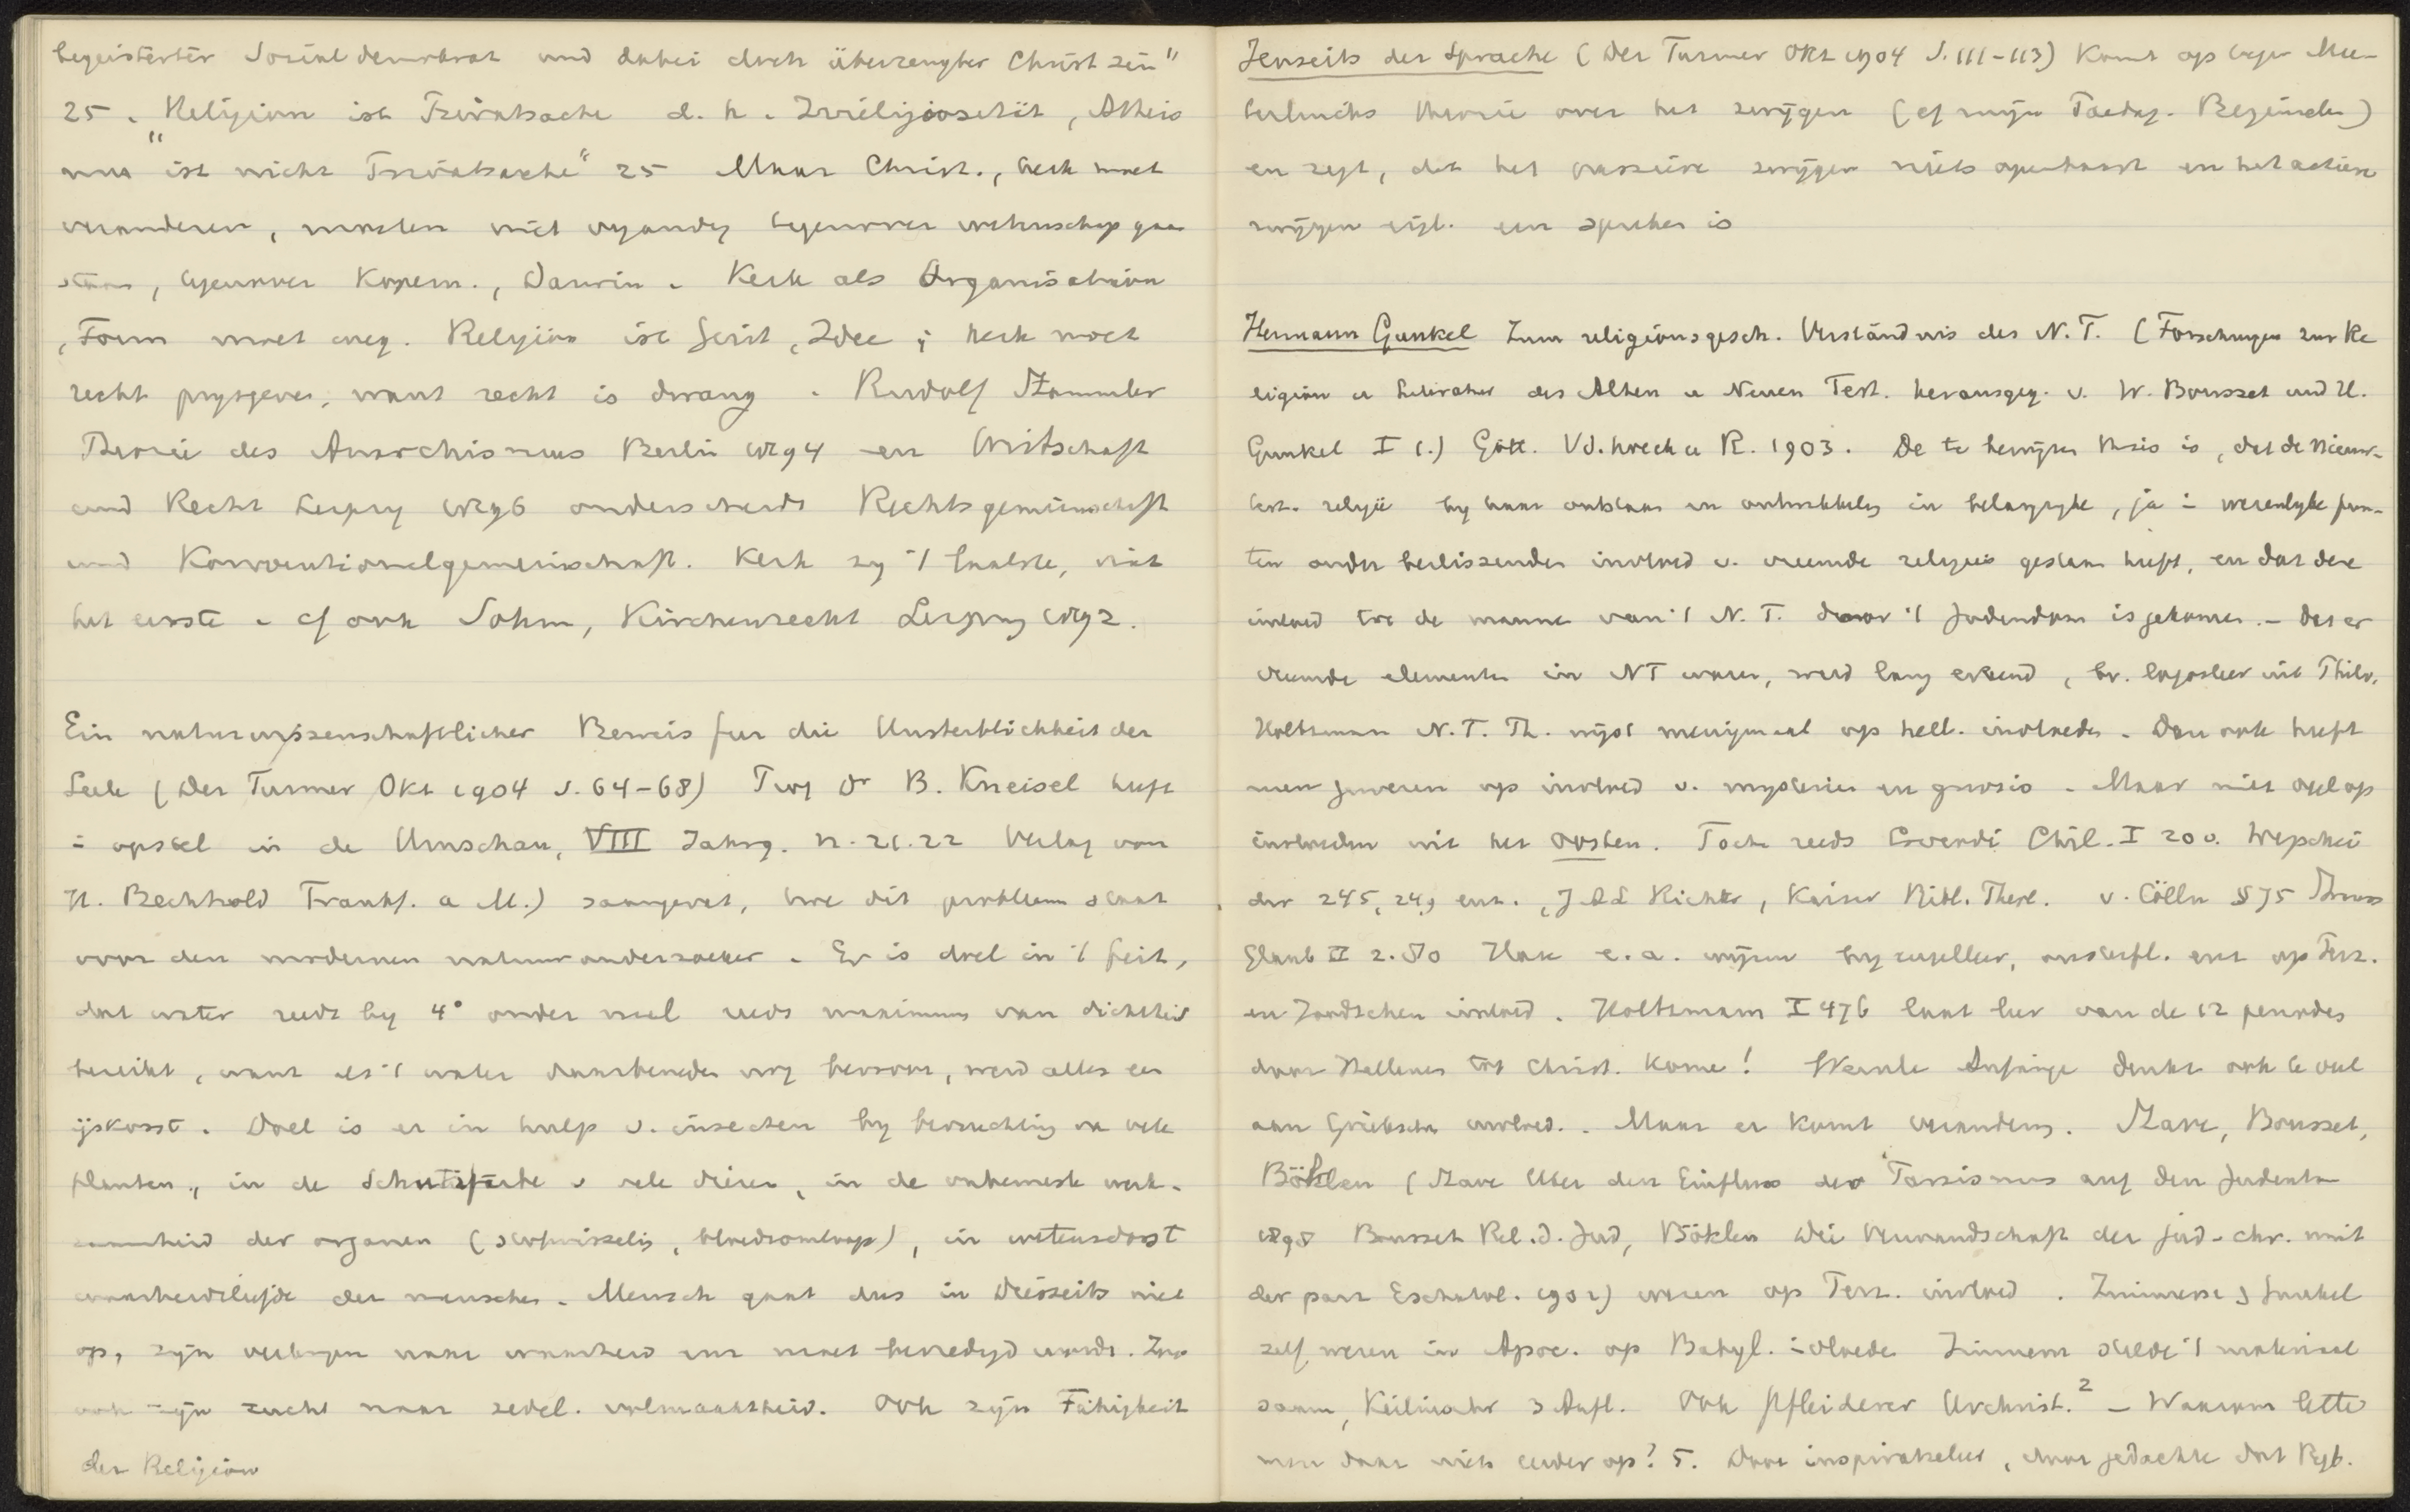 begeisterter Socialdemokrat und dabei doch überzeugter Christ sein"
25. "Religion ist Privatsache d. h. Irreligiosität, Atheis
mus ist nicht Privatsache" 25 Maar Christ., kerk moet
veranderen, moeten niet vyandig tegenover wetenschap gaan
staan, tegenover Kopern., Darwin. Kerk als Organisation
, Form moet weg. Religion ist Geist, Idee; kerk moet
recht prysgeven, want recht is dwang. Rudolf Stammler
Theorie des Anarchismus Berlin 1894 en Wirtschaft
und Recht Leipzig 1896 onderscheidt Rechtsgemeinschaft
und Konventionalgemeinschaft. Kerk zy 't laatste, niet
het eerste. cf ook Sohm, Kirchenrecht Leipzig 1892.
Ein naturwissenschaftlicher Beweis fur die Unsterblichkeit der
Seele (Der Turmer Okt 1904 S. 64-68) Dr B. Kneisel heeft
in opstel in de Umschau, VIII Jahrg. n. 21.22 Verlag von
H. Bechhold Frankf. a M.) saamgevat, hoe dit probleem staat
voor den modernen natuuronderzoeker. Er is doel in 't feit,
dat water reeds by 4° onder nul reeds maximum van dichtheid
bereikt, want als 't water daarbeneden nog bevroor, werd alles een
ijskorst. Doel is er in hulp v. insecten by bevruchting van vele
planten, in de Schutzfarbe v vele dieren, in de onbewuste werk-
zaamheid der organen (stofwisseling, bloedsomloop), in wetensdorst
waarheidsliefde der menschen. Mensch gaat dus in Diesseits niet
op, zyn verlangen naar waarheid enz moet bevredigd worden. Zoo
ook zyn zucht naar zedel. volmaaktheid. Ook zyn Fähigkeit
der Religion
Jenseits der Sprache (Der Turmer Okt 1904 S. 111-113) Komt op tegen Mae-
terlincks theorie over het zwijgen (cf mijn Paedag. Beginselen)
en zegt, dat het passieve zwijgen niets openbaart en het actieve
zwijgen eigl. een spreken is
Hermann Gunkel Zum religionsgesch. Verständnis des N. T. (Forschungen zur Re
ligion u Literatur des Alten u Neuen Test. herausgeg. v. W. Bousset und H.
Gunkel I 1.) Gött. Vd.hoeck u R. 1903. De te bewijzen thesis is, dat de Nieuw-
test. religie by haar ontstaan en ontwikkeling in belangryke, ja in wezenlyke pun-
ten onder beslissenden invloed v. vreemde religies gestaan heeft, en dat deze
invloed tot de mannen van 't N. T. door 't Jodendom is gekomen. - Dat er
vreemde elementen in NT waren, werd lang erkend, bv. logosleer uit Philo.
Holtzmann N. T. Th. wijst menigmaal op hell. invloeden. Dan ook heeft
men gewezen op invloed v. mysterien en gnosis. Maar niet ook op
invloeden uit het oosten. Toch reeds Corrodi Chil. I 20 v. Wegscheider
245, 249 enz., J. A. L Richter, Kaiser Bibl. Theol. v. Cölln § 75 Strauss
Glaub II 2.80 Hase e. a. wijzen by engelleer, opstand. enz op Perz.
en Joodschen invloed. Holtzmann I 476 laat leer van de 12 poorten
door Hellenen tot Christ. komen! Wernle Anfänge denkt ook te veel
aan Grieksche invloed. Maar er komt verandering. Stave, Bousset,
Böklen (Stave Uber den Einfluss des Parsismus auf den Judentum
1898 Bousset Rel. d. Jud, Böklen Die Verwandschaft der jüd-chr. mit
der pars Eschatol. 1902) wezen op Perz. invloed. Zimmern, Gunkel
zelf wezen in Apoc. op Babyl. invloeden Zimmern stelde 't materiaal
saam, Keilinschr 3 Aufl. Ook Pfleiderer Urchrist.² - Waarom lette
men daar niet eerder op? 5. Door inspiratieleer, door gedachte dat Bijb.